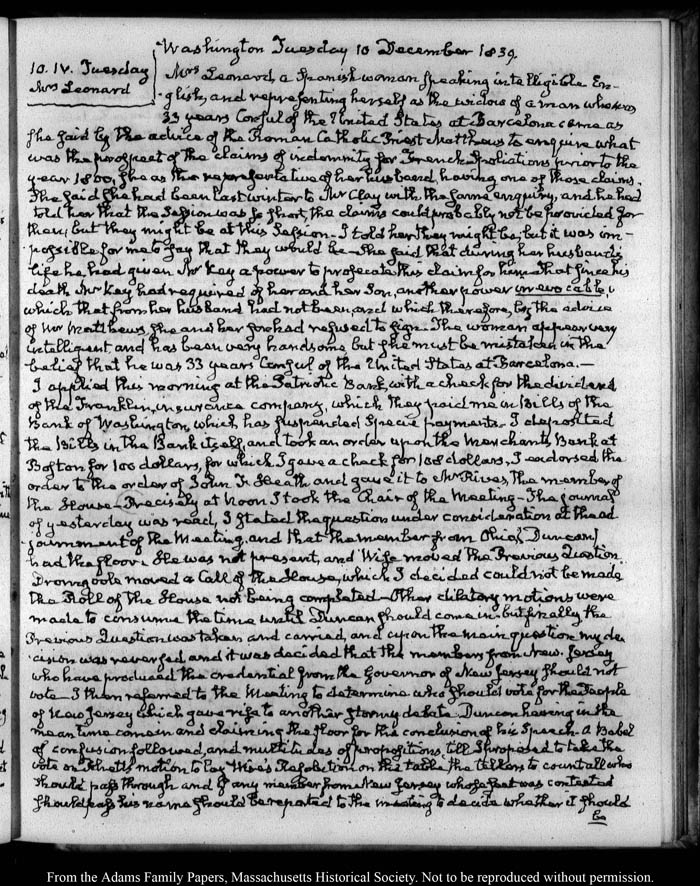 Washington Tuesday 10 December 1839.
10. IV. Tuesday
Mrs Leonard
Mrs Leonard, a Spanish woman speaking intelligible En-
glish, and representing herself as the widow of a man who was
33 years Consul of the United States at Barcelona came as
she said by the advice of the Roman Catholic Priest Matthews to enquire what
was the prospect of the claims of indemnity for French Spoliations prior to the
year 1800, she as the representative of her husband having one of those claims.
She said she had been last winter to Mr Clay with the same enquiry, and he had
told her that the Session was so short, the claims could probably not be provided for
then, but they might be at this Session. I told her they might be, but it was im-
possible for me to say that they would be. She said that during her husband's
life he had given Mr Key a power to prosecute this claim for him. That since his
death Mr Key had required of her and her Son, another power irrevocable,
which that from her husband had not been, and which therefore, by the advice
of Mr Matthews, she and her son had refused to sign. The woman appears very
intelligent and has been very handsome but she must be mistaken in the
belief that he was 33 years Consul of the United States at Barcelona.—
I applied this morning at the Patriotic Bank, with a check for the dividend
of the Franklin, insurance company, which they paid me in Bills of the
Bank of Washington, which has suspended Specie payments. I deposited
the Bills in the Bank itself, and took an order upon the Merchants Bank at
Boston for 100 dollars, for which I gave a check for 108 dollars, I endorsed the
order to the order of John F. Heath and gave it to Mr Rives, the member of
the House. Precisely at Noon I took the Chair of the Meeting. The journal
of yesterday was read, I stated the question under consideration at the ad-
journment of the Meeting, and that the member from Ohio, Duncan,
had the floor. He was not present, and Wise moved the Previous Question
Dromgoole moved a Call of the House, which I decided could not be made
the Roll of the House not being completed. Other dilatory motions were
made to consume the time until Duncan should come in. but finally the
Previous Question was taken and carried, and upon the main question my de-
cision was reversed and it was decided that the members from New Jersey
who have produced the credential from the Governor of New Jersey should not
vote. I then referred to the Meeting to determine who should vote for the People
of New Jersey which gave rise to another stormy debate. Duncan having in the
mean time come in and claiming the floor for the conclusion of his Speech. A Babel
of confusion followed, and multitudes of propositions, till I proposed to take the
vote on Rhett's motion to lay Wise's Resolution on the table, the tellers to count all who
should pass through and if any member from New Jersey whose seat was contested
should pass his name should be reported to the meeting to decide whether it should
be
From the Adams Family Papers, Massachusetts Historical Society. Not to be reproduced without permission.